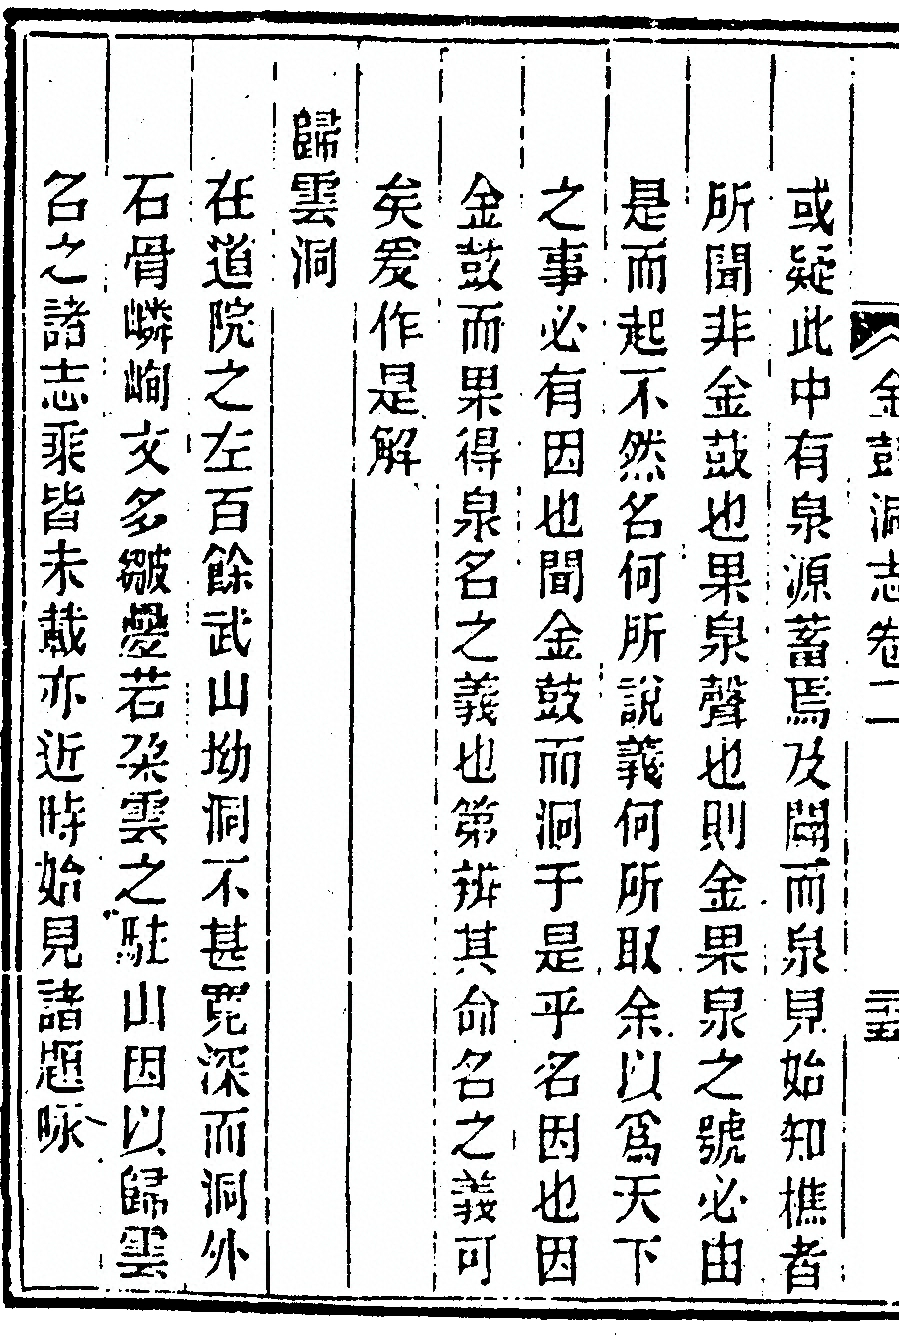 金鼓洞志卷二 三十五
或疑此中有泉源蓄焉及闢而泉見始知樵者
所聞非金鼓也果泉聲也則金果泉之號必由
是而起不然名何所說義何所取余以爲天下
之事必有因也聞金鼓而洞于是乎名因也因
金鼓而果得泉名之義也第辨其命名之義可
矣爰作是解
歸雲洞
在道院之左百餘武山坳洞不甚寬深而洞外
石骨嶙峋文多皺疊若朶雲之駐山因以歸雲
名之諸志乘皆未載亦近時始見諸題咏